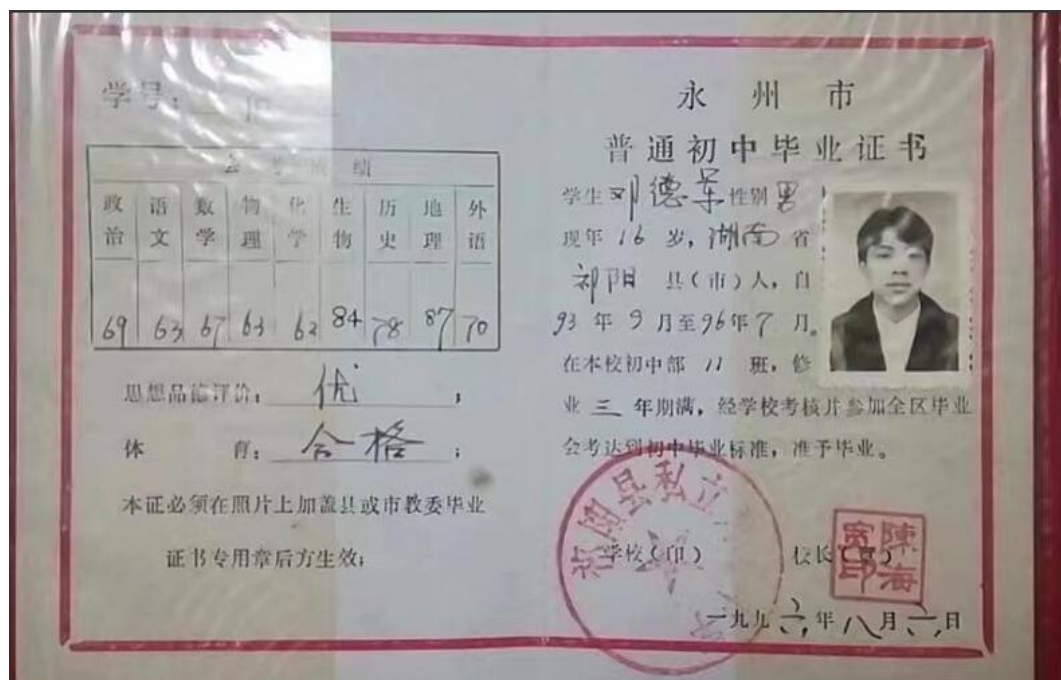 学号：
会考成绩
政治 语文 数学 物理 化学 生物 历史 地理 外语
69 63 67 63 62 84 78 87 70
思想品德评价：优，
体 育：合格；
本证必须在照片上加盖县或市教委毕业
证书专用章后方生效；
永州市
普通初中毕业证书
学生邓德军性别男
现年16岁，湖南省
祁阳县（市）人，自
93年9月至96年7月。
在本校初中部11班，修
业三年期满，经学校考核片参加全区毕业
会考达到初中毕业标准，准予毕业。
祁阳县私立
学校（印） 校长（章）
陳海
印
一九九六年八月六日